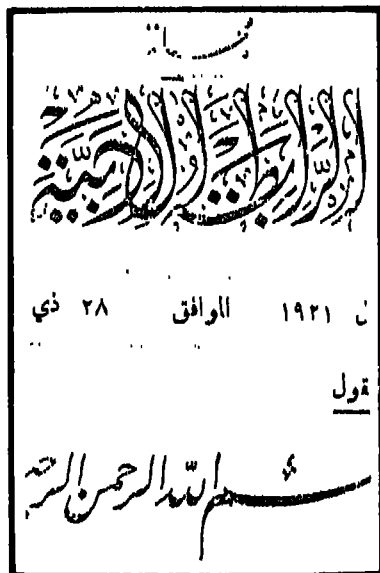 الرابطة الأدبية
ن ١٩٢١ الموافق ٢٨ ذي
قول
بسم الله الرحمن الرح